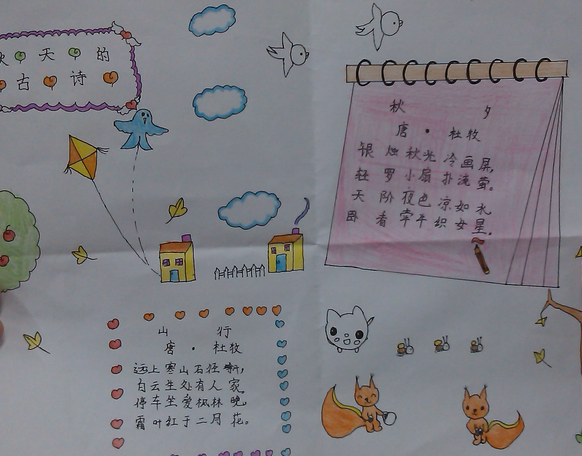 秋天的
古诗
秋 夕
唐·杜牧
银烛秋光冷画屏,
轻罗小扇扑流萤。
天阶夜色凉如水,
卧看牵牛织女星。
山 行
唐·杜牧
远上寒山石径斜,
白云生处有人家。
停车坐爱枫林晚,
霜叶红于二月花。